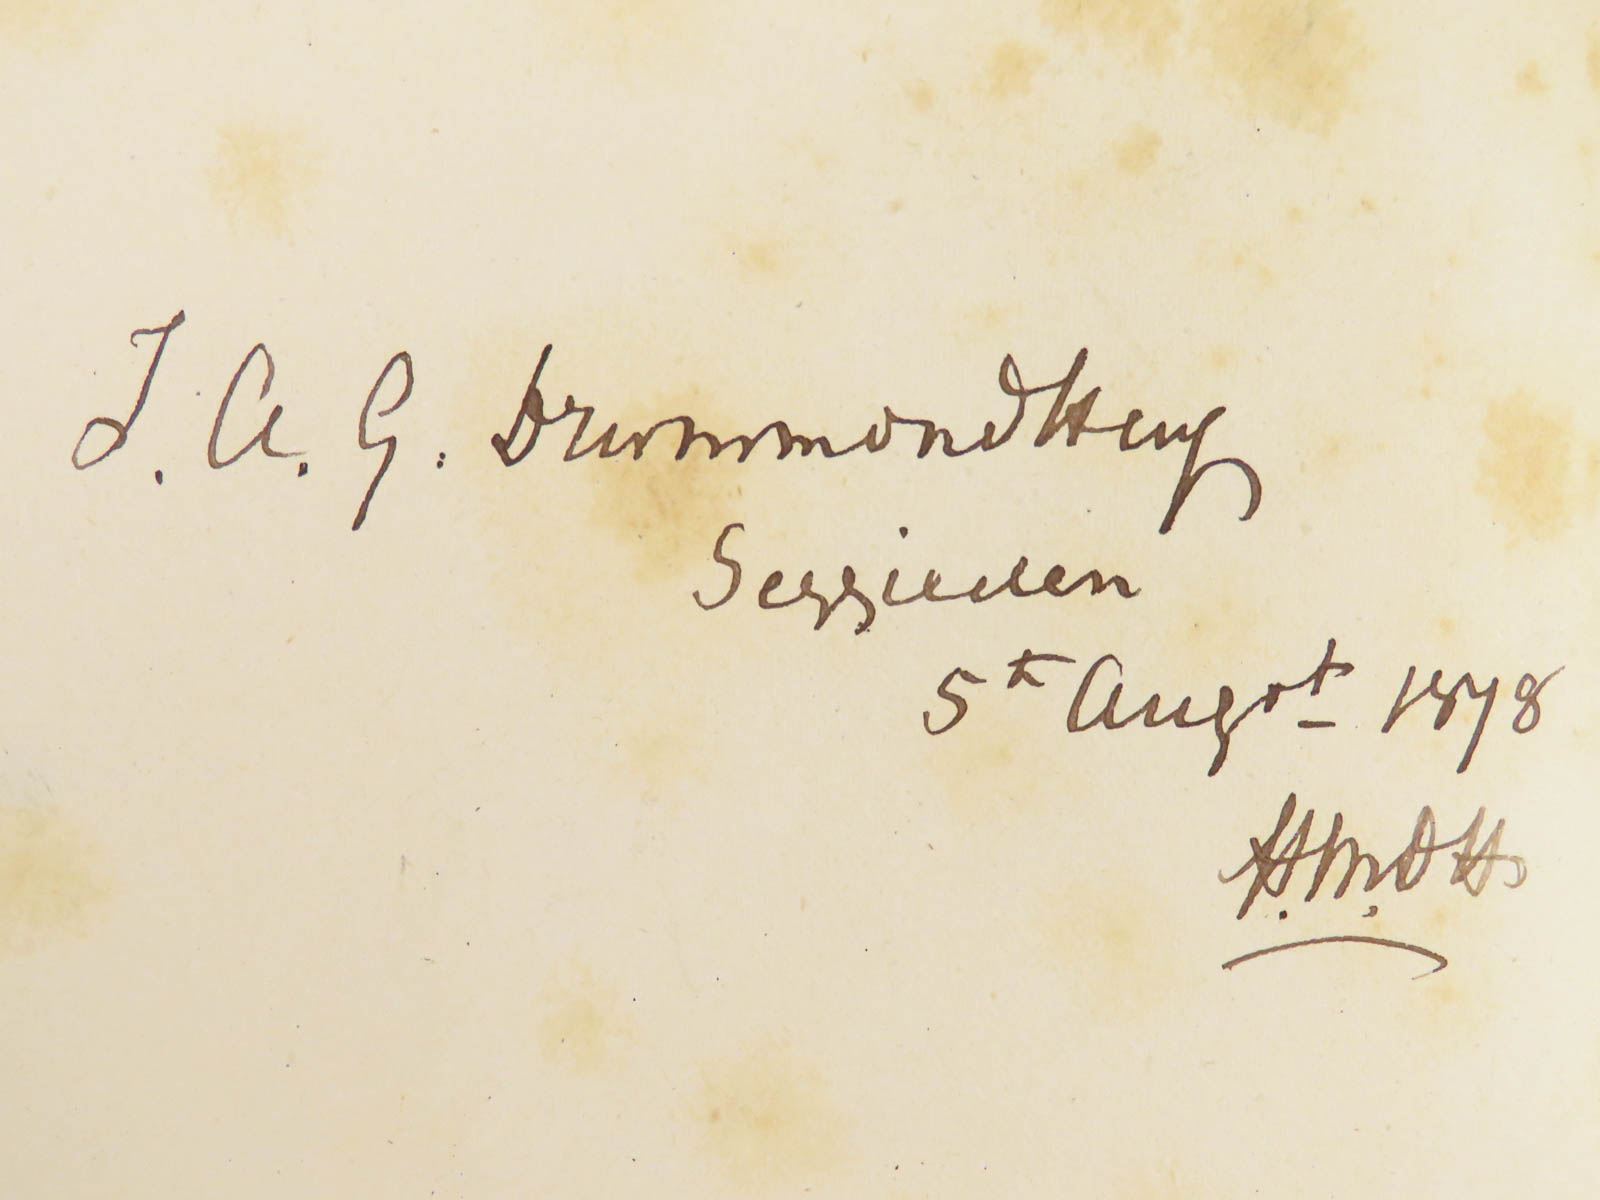 J. A. G. Drummond Hay
Seggieden
5th Augst 1878
H. M. D H.